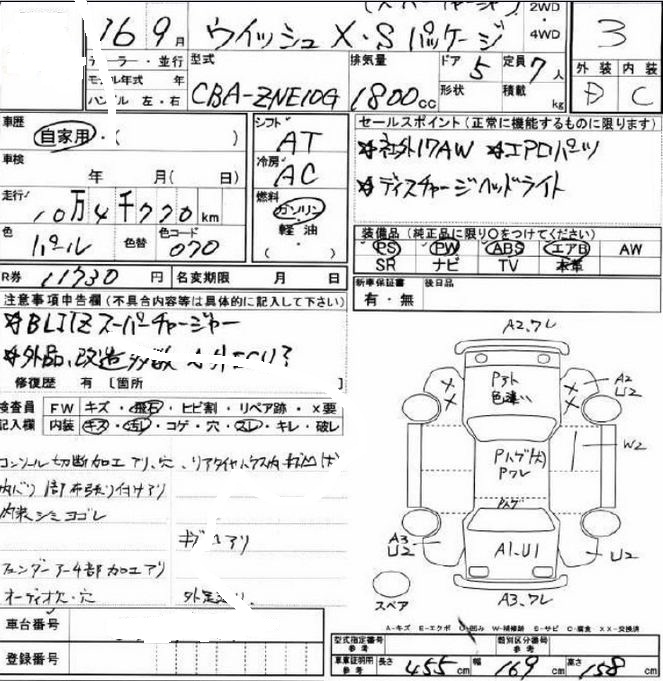 (スーパーチャージャー)
16 9月 ウイッシュ X・Sパッケージ 2WD・4WD 3
ディーラー・並行 型式 排気量 ドア 5 定員 7人 外装 内装
モデル年式 年 CBA-ZNE10G 1800cc 形状 積載 kg D C
ハンドル 左・右
車歴 自家用・( ) シフト AT セールスポイント(正常に機能するものに限ります)
車検 年 月( 日) 冷房 AC ☆社外17AW ☆エアロパーツ
走行 10万4千770km 燃料 ガソリン 軽油 ( ・ ) ☆ディスチャージヘッドライト
色 パール 色替 色コード 070 装備品(純正品に限り○をつけてください)
PS PW ABS エアB AW
SR ナビ TV 本革
R券 11730円 名変期限 月 日 新車保証書 有・無 後日品
注意事項申告欄(不具合内容等は具体的に記入して下さい)
☆BLITZスーパーチャージャー
☆外品、改造多数
修復歴 有 [箇所 ]
検査員 FW キズ・飛石・ヒビ割・リペア跡・×要
記入欄 内装 キズ・汚レ・コゲ・穴・スレ・キレ・破レ
コンソール切断加工アリ、穴、リアタイヤハウス内
内張シミヨゴレ
キズ アリ
フェンダーアーチ部加工アリ
オーディオ欠・穴
A2.ワレ
Pアト 色違い
A2 U2
W2
Pハゲ(大) Pワレ
Pハゲ
A3 U2
A1.U1
U2
スペア
A3.ワレ
A-キズ E-エクボ U-凹み W-補修跡 S-サビ C-腐食 XX-交換済
車台番号
登録番号
型式指定番号 参考 類別区分番号 参考
車庫証明用 参考 長さ 455cm 幅 169cm 高さ 158cm